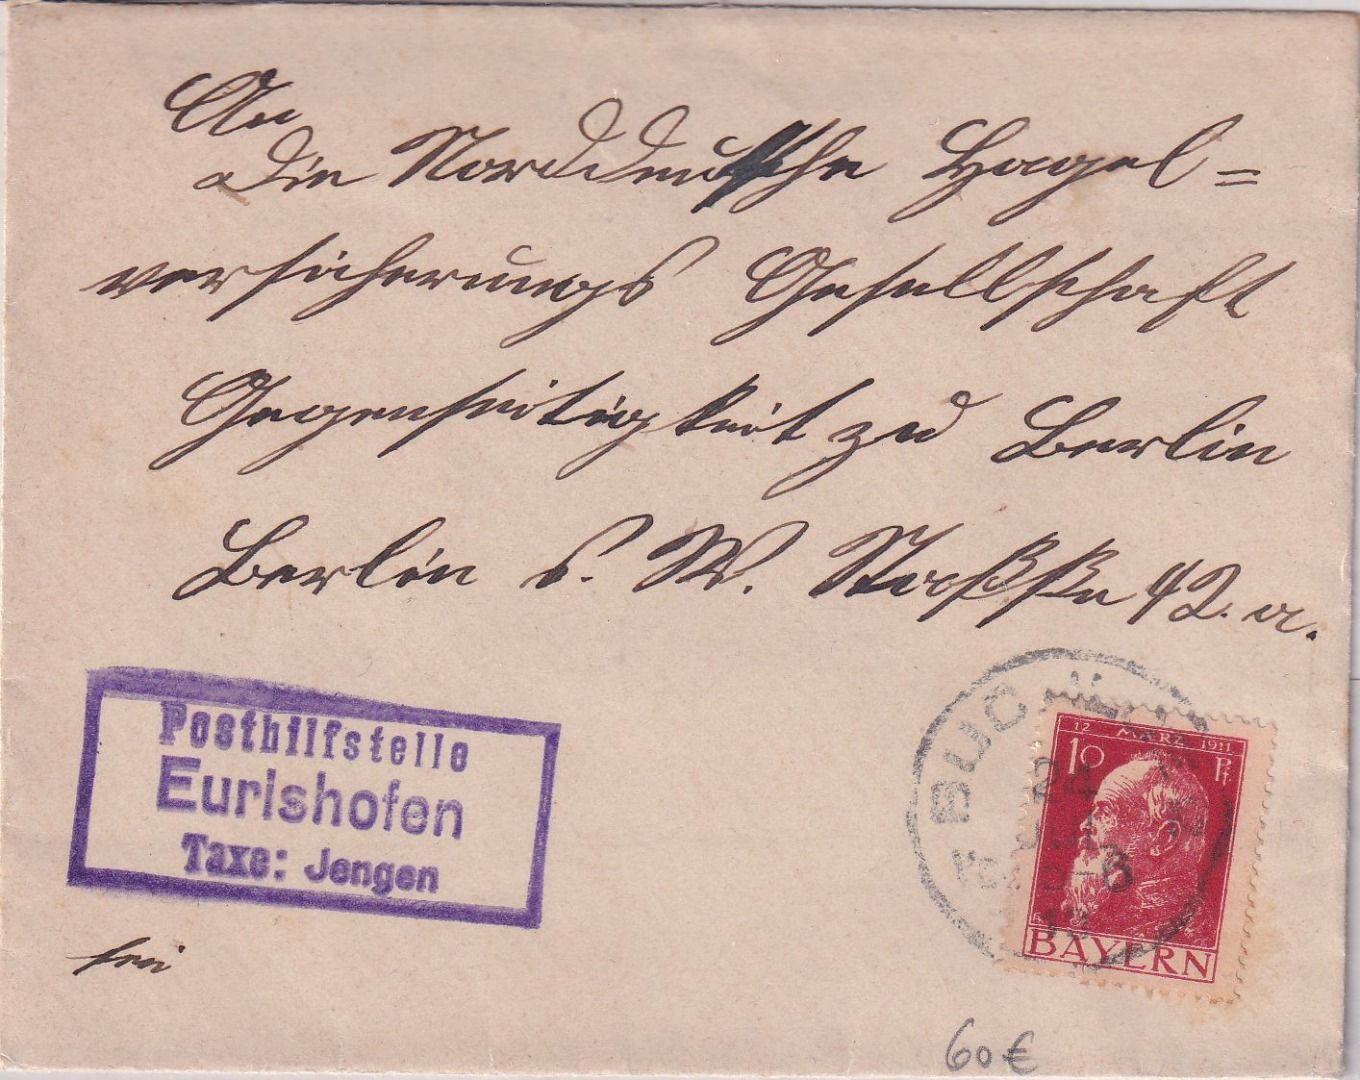 An
die Norddeutsche Hagel=
versicherungs Gesellschaft
Gegenseitigkeit zu Berlin
Berlin S. W. Straße 42. a.
Posthilfstelle
Eurishofen
Taxe: Jengen
12 MÄRZ 1911
10 Pf
BAYERN
BUCHLOE
24
60€